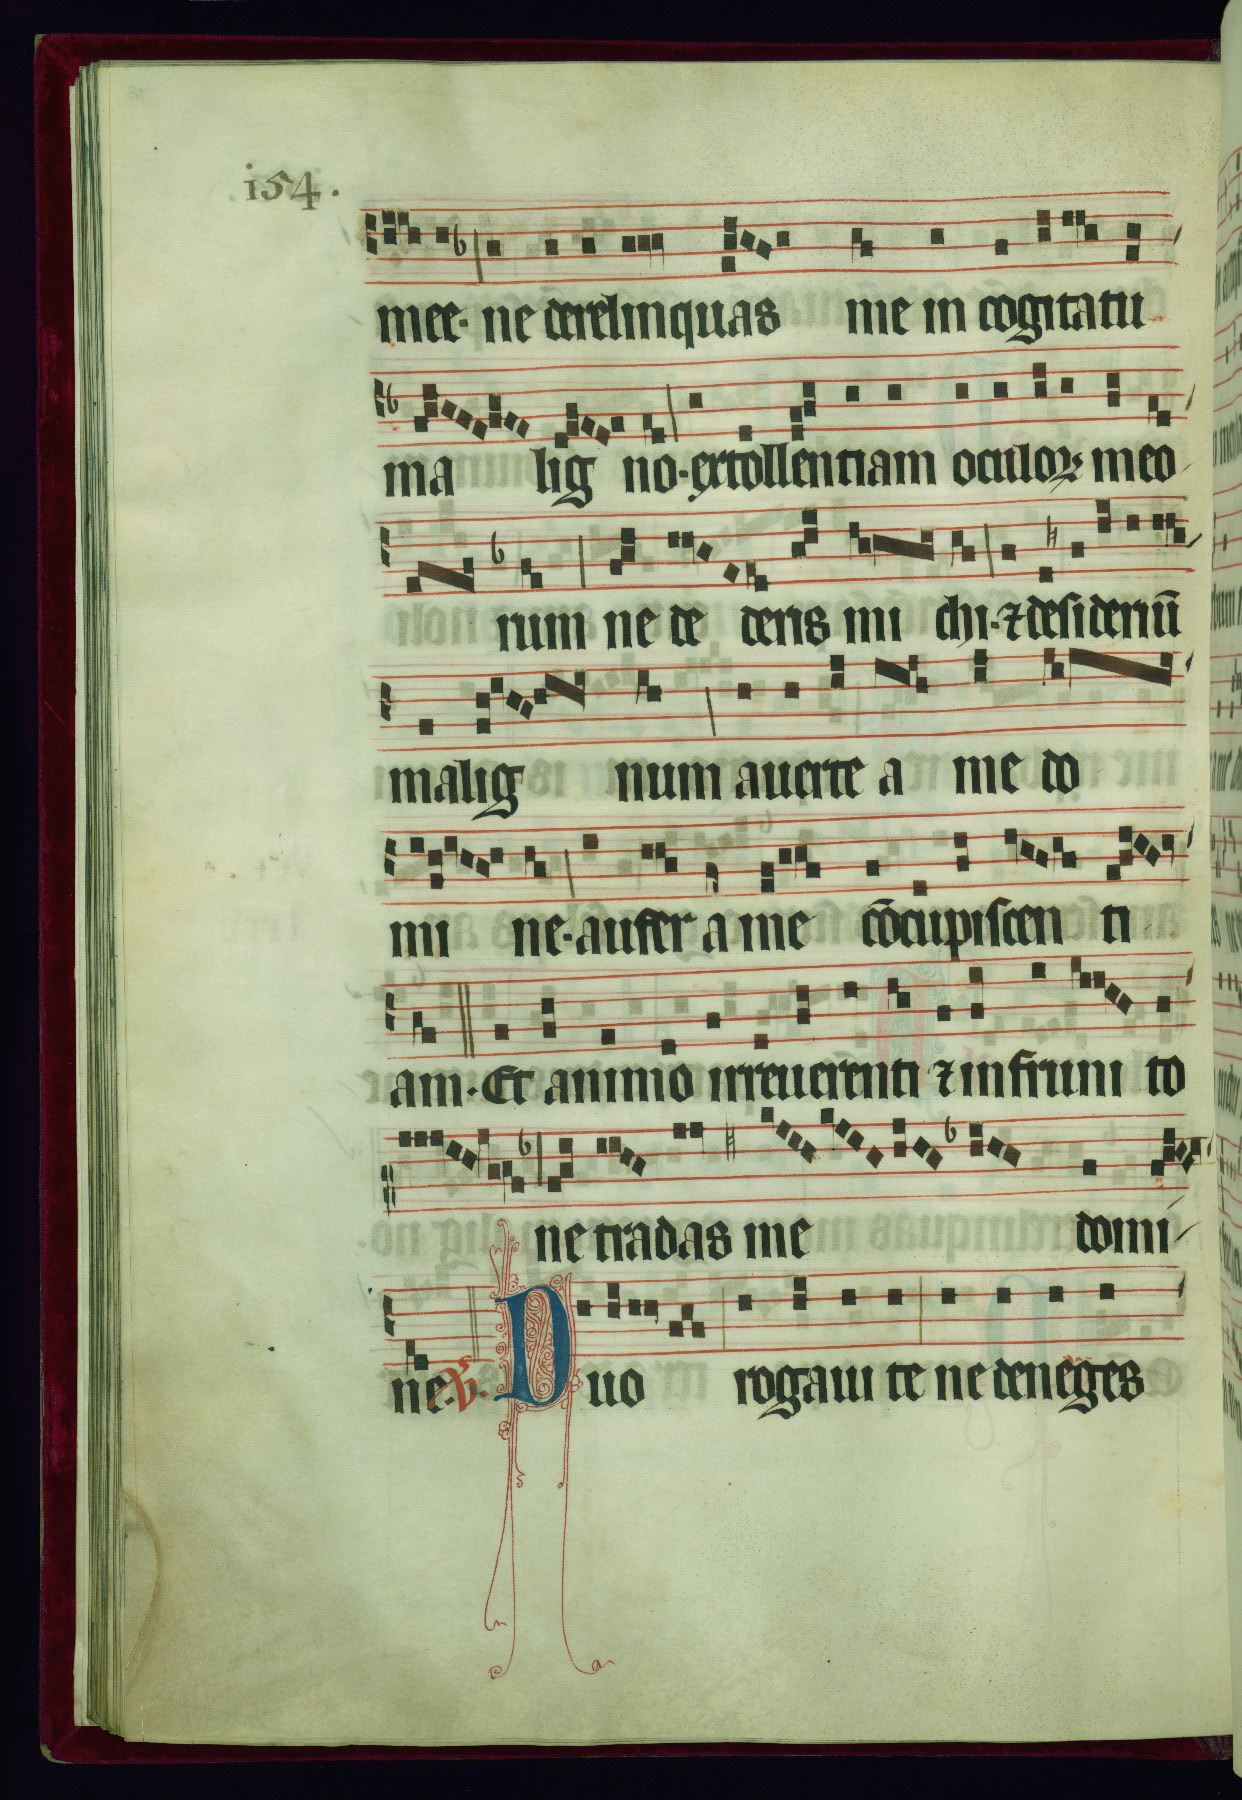 .i54.
mee· ne derelinquas me in cogitatu
ma lig no·extollentiam oculoꝝ meo
rum ne de deris mi chi·⁊desideriū
malig num auerte a me do
mi ne·aufer a me cōcupiscen ti
am·Et animo irreuerenti ⁊ infruni to
ne tradas me domi
ne·℣. Duo rogaui te ne deneges